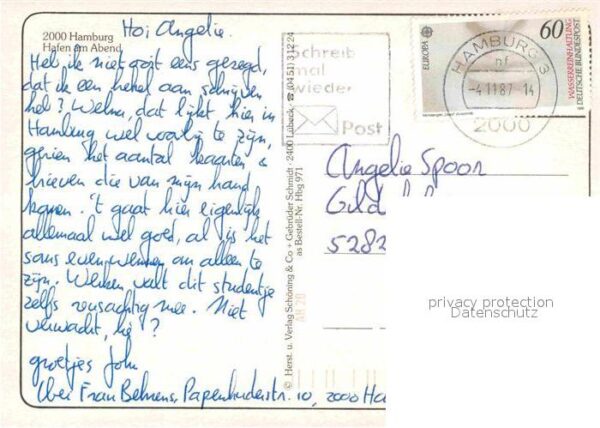 2000 Hamburg
Hafen am Abend
Hoi Angelie.
Heb ik niet ooit eens gezegd,
dat ik een hekel aan schrijven
heb? Welnu, dat lijkt hier in
Hamburg wel voorbij te zijn,
gezien het aantal kaarten &
brieven die van mijn hand
komen. 't gaat hier eigenlijk
allemaal wel goed, al is het
soms even wennen om alleen te
zijn. Werken valt dit studentje
zelfs reusachtig mee. Niet
verwacht, hè?
groetjes John
bei Frau Behrens, Papenhuderstr. 10, 2000 Ha
© Herst. u. Verlag Schöning & Co + Gebrüder Schmidt · 2400 Lübeck · ☎ (0451) 31224
as Bestell-Nr. Hbg 971
Schreib
mal
wieder
Post
EUROPA
60
WASSERREINHALTUNG
DEUTSCHE BUNDESPOST
HAMBURG 3
nf
-4.11.87-14
2000
Angelie Spoor
5282
privacy protection
Datenschutz